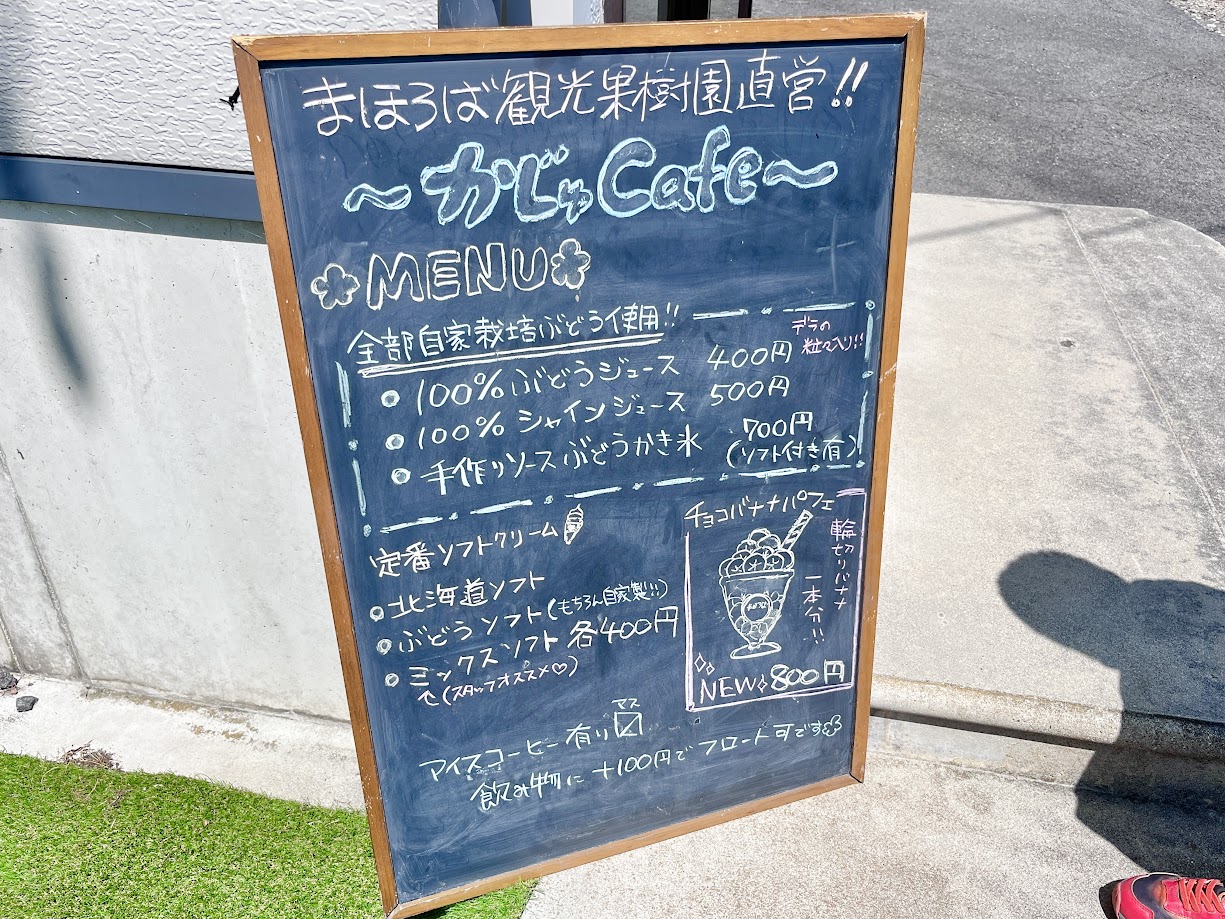 まほろば観光果樹園直営!!
～かじゅCafe～
MENU
全部自家栽培ぶどう使用!!
デラの
粒々入り!!
・100%ぶどうジュース 400円
・100%シャインジュース 500円
・手作りソースぶどうかき氷 700円
(ソフト付き有)
定番ソフトクリーム
・北海道ソフト
・ぶどうソフト(もちろん自家製!!)
・ミックスソフト 各400円
↑(スタッフオススメ♡)
チョコバナナパフェ
輪切りバナナ
一本分!!
NEW 800円
アイスコーヒー有り〼
マス
飲み物に+100円でフロート可です